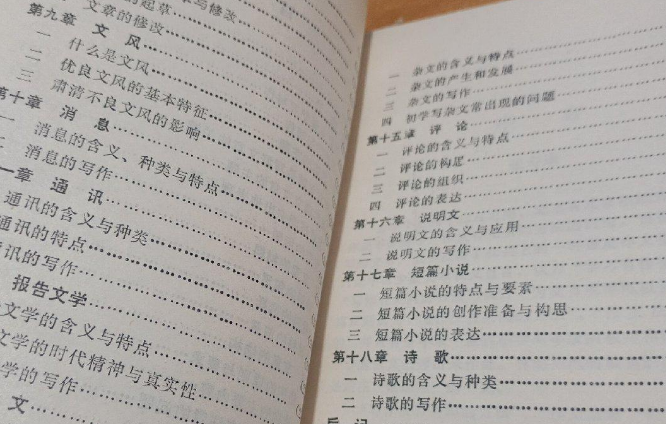 的起草
文章的修改
第九章 文 风
一 什么是文风
二 优良文风的基本特征
三 肃清不良文风的影响
第十章 消 息
一 消息的含义、种类与特点
二 消息的写作
一章 通 讯
通讯的含义与种类
通讯的特点
讯的写作
报告文学
文学的含义与特点
文学的时代精神与真实性
学的写作
文
一 杂文的含义与特点
二 杂文的产生和发展
三 杂文的写作
四 初学写杂文常出现的问题
第十五章 评 论
一 评论的含义与特点
二 评论的构思
三 评论的组织
四 评论的表达
第十六章 说明文
一 说明文的含义与应用
二 说明文的写作
第十七章 短篇小说
一 短篇小说的特点与要素
二 短篇小说的创作准备与构思
三 短篇小说的表达
第十八章 诗 歌
一 诗歌的含义与种类
二 诗歌的写作
后 记